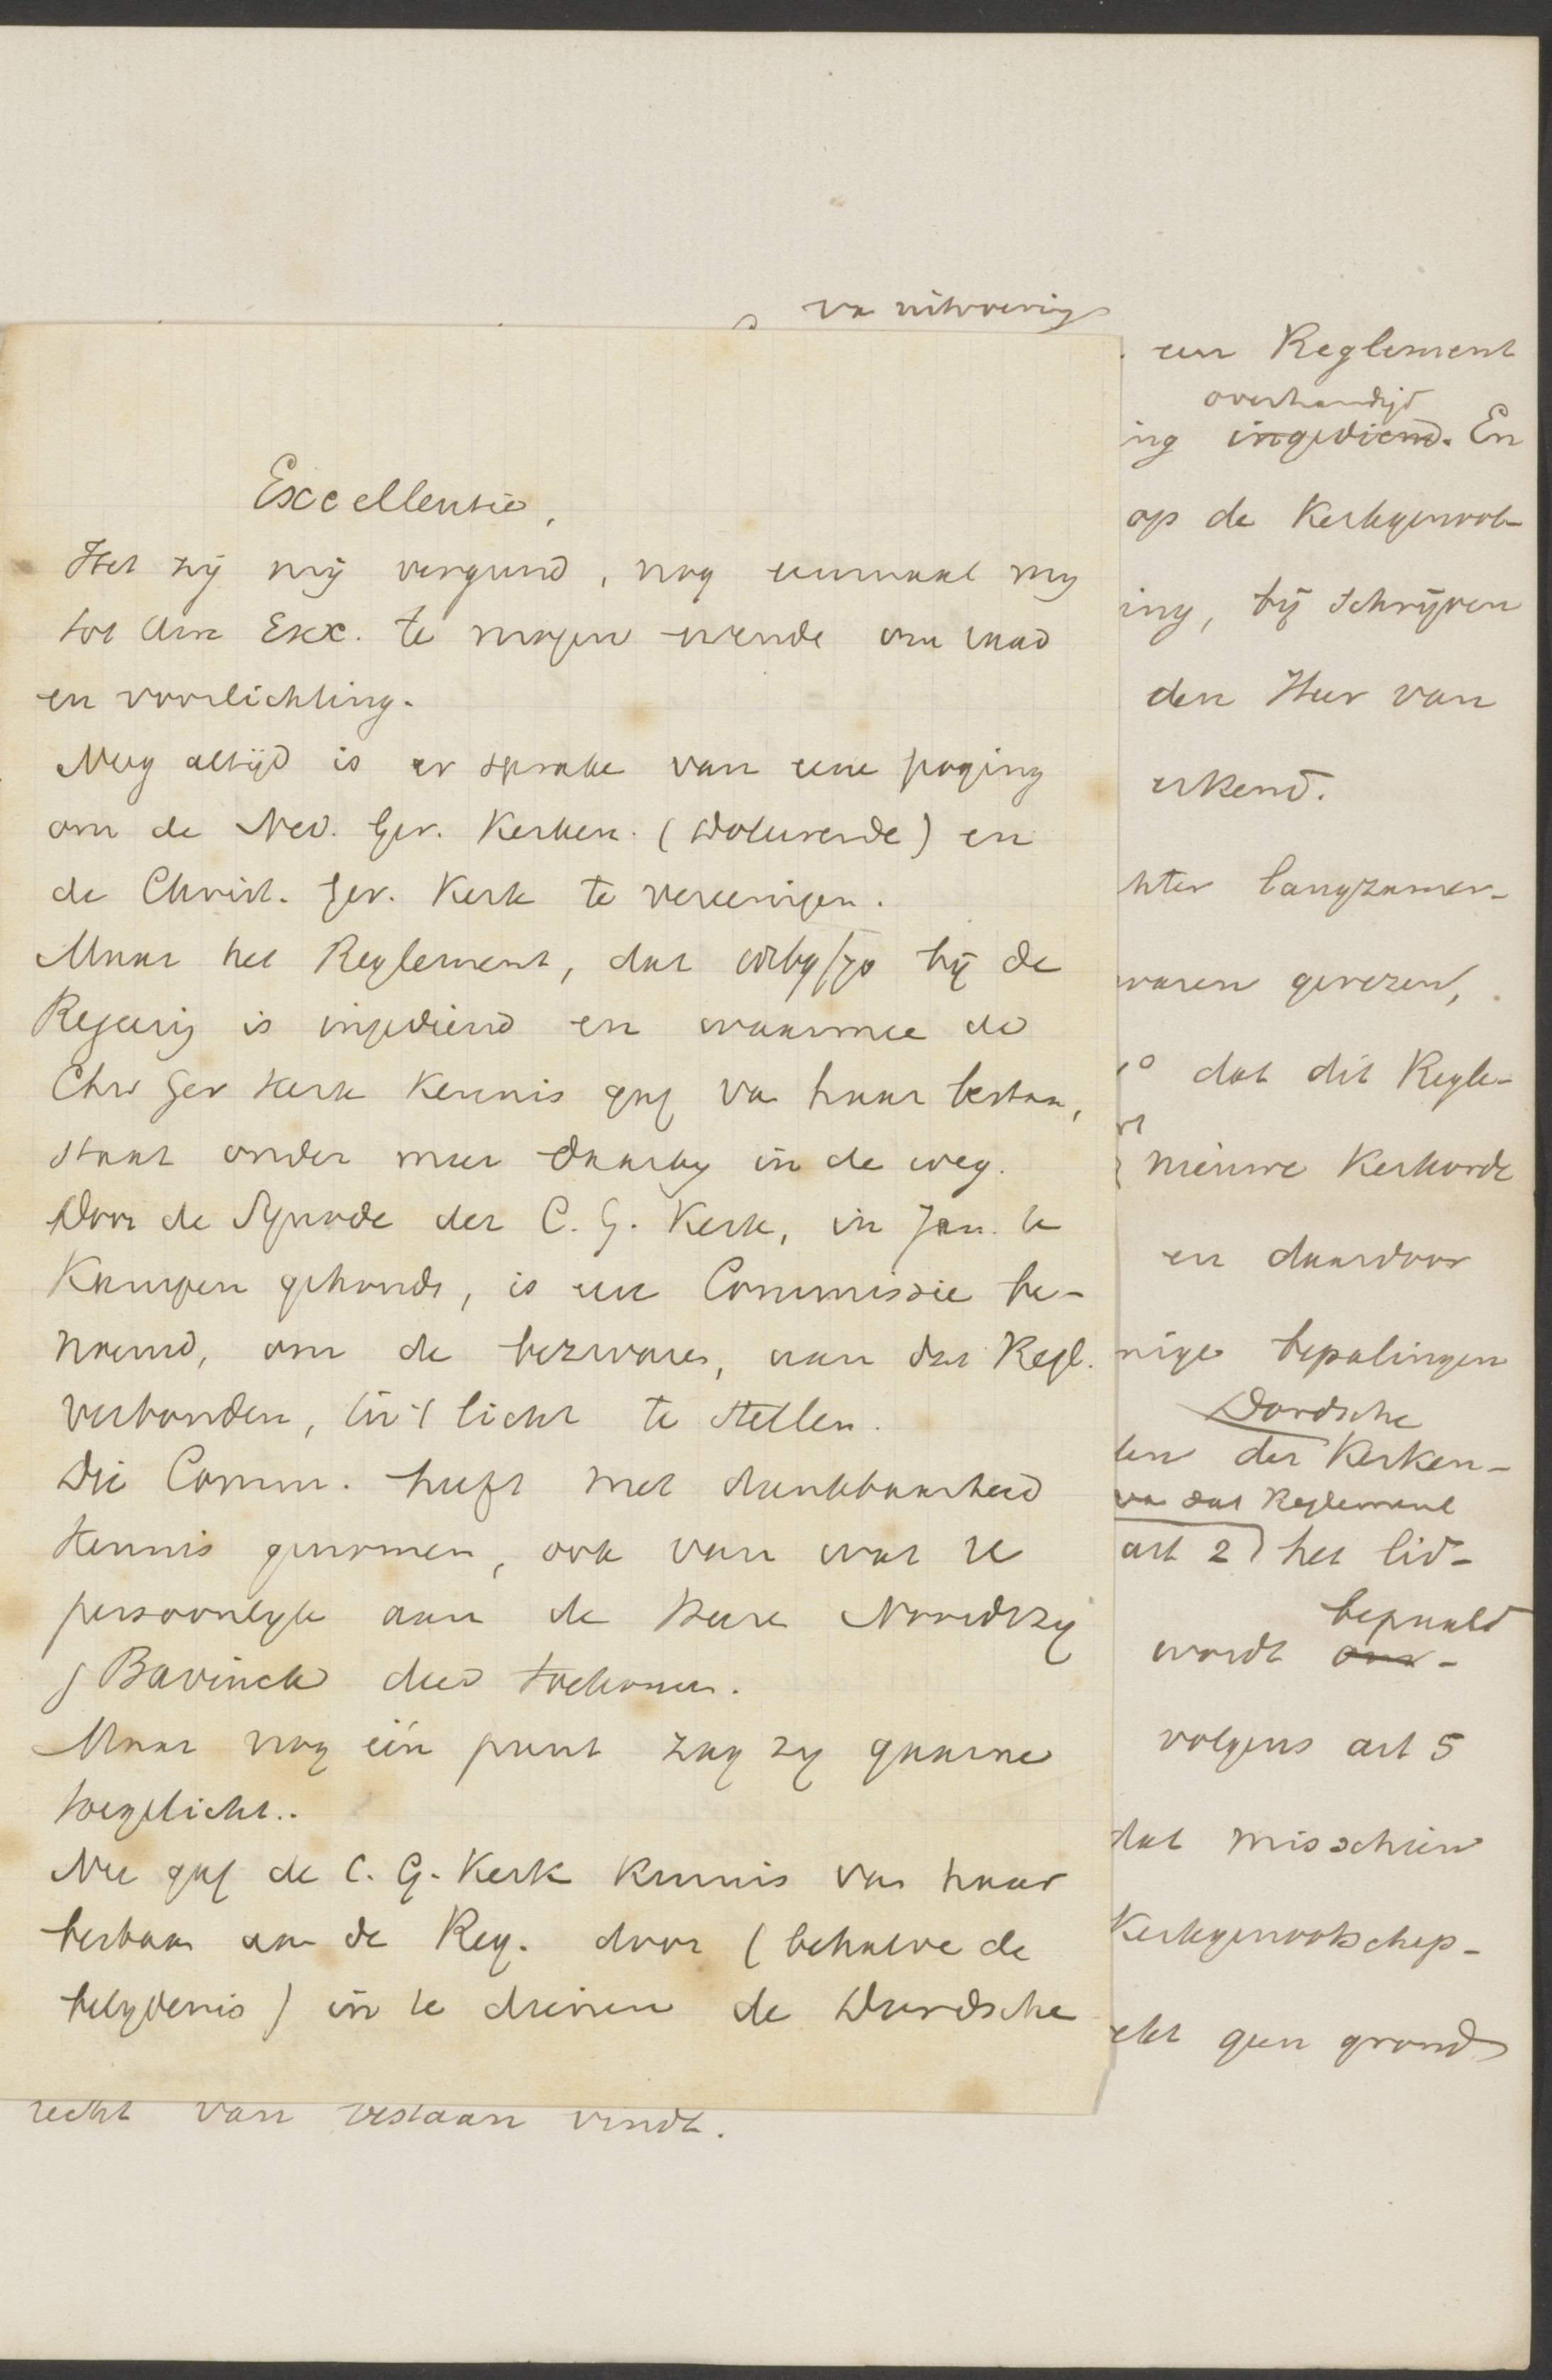 va uitvoering
Excellentie,
Het zij mij vergund, nog eenmaal my
tot Uwe Exc. te mogen wende om raad
en voorlichting.
Nog altijd is er sprake van eene poging
om de Ned. Ger. Kerken. (Doleerende) en
de Christ. Ger. Kerk te vereenigen.
Maar het Reglement, dat bij de
Regeerig is ingediend en waarmee de
Chr Ger Kerk kennis gaf va haar bestaan,
staat onder meer daarby in de weg.
Door de Synode der C. G. Kerk, in Jan. te
Kampen gehoude, is eene Commissie be-
noemd, om de bezwaren, aan dat Regl.
verbonden, in 't licht te stellen.
Die Comm. heeft met dankbaarheid
kennis genomen, ook van wat U
persoonlyk aan de Heere Noordtzy
Bavinck deed toekomen.
Maar nog één punt zag zy gaarne
toegelicht..
Nu gaf de C. G. Kerk kennis van haar
bestaan aan de Reg. door (behalve de
belydenis) in te dienen de Dordsche
een Reglement
overhandigd
ing ingediend. En
op de Kerkgenoot-
ing, bij schrijven
den Heer van
erkend.
hter langzamer-
waren gerezen,
1o dat dit Regle-
nieuwe Kerkorde
en daardoor
nige bepalingen
Dordsche
len der Kerken-
va dat Reglement
art 2) het lid-
bepaald
wordt
volgens art 5
dat misschien
Kerkgenootschap-
ekt geen grond
recht van bestaan vindt.